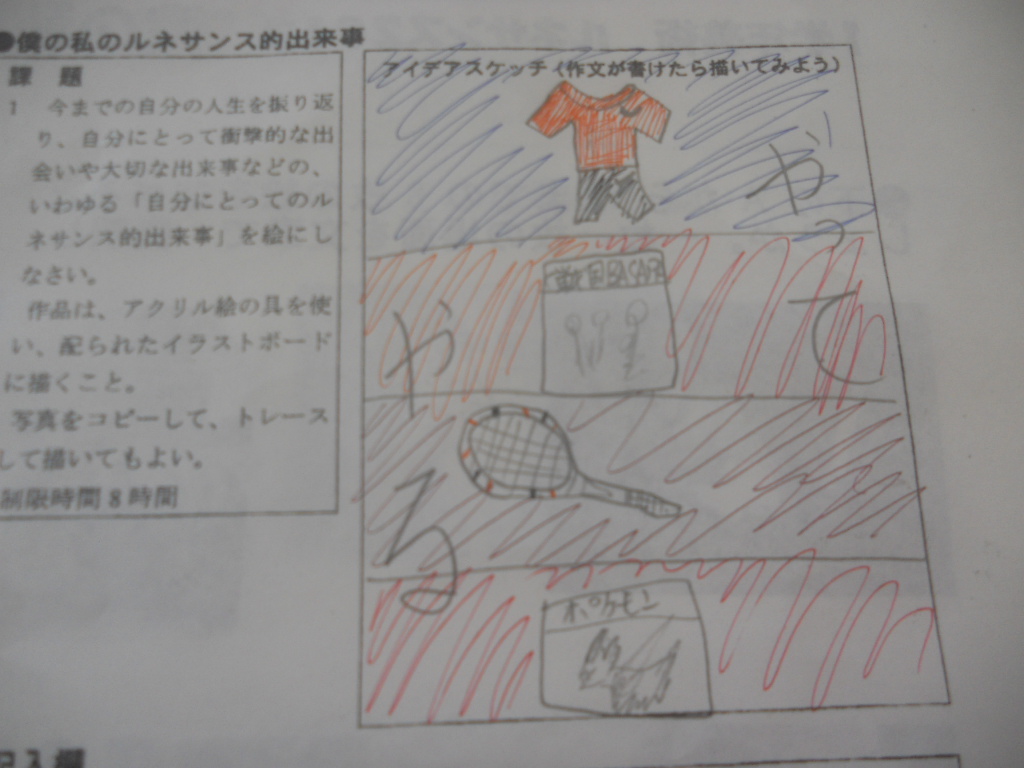 ●僕の私のルネサンス的出来事
課 題
1 今までの自分の人生を振り返
り、自分にとって衝撃的な出
会いや大切な出来事などの、
いわゆる「自分にとってのル
ネサンス的出来事」を絵にし
なさい。
作品は、アクリル絵の具を使
い、配られたイラストボード
に描くこと。
写真をコピーして、トレース
して描いてもよい。
制限時間8時間
アイデアスケッチ(作文が書けたら描いてみよう)
やって
やる
ポケモン
記入欄